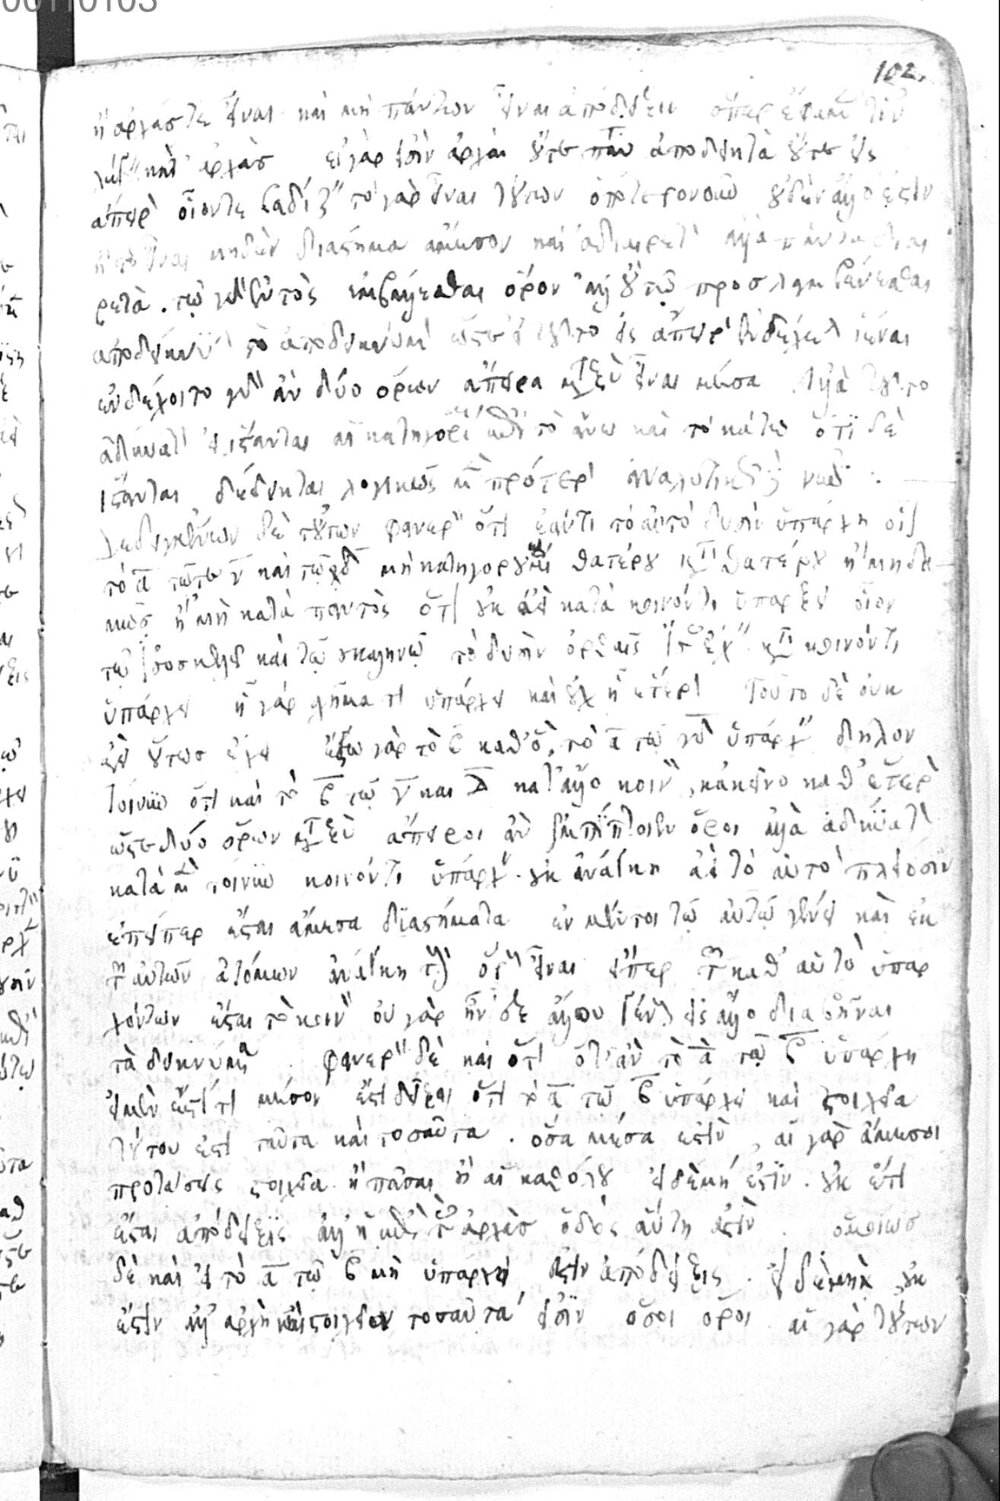 ἢ ἀρχάς τε εἶναι καὶ μὴ πάντων εἶναι ἀπόδειξιν ὅπερ ἔφαμέν τιν
λέγειν κατ' ἀρχάς εἰ γὰρ εἰσὶν ἀρχαὶ οὔτε πάντ' ἀποδεικτὰ οὔτε εἰς
ἄπειρον οἷόν τε βαδίζειν τὸ γὰρ εἶναι τούτων ὁποτερονοῦν οὐδὲν ἄλλο ἐστὶν
ἢ τὸ εἶναι μηδὲν διάστημα ἄμεσον καὶ ἀδιαίρετον ἀλλὰ πάντα διαι
ρετά. τῷ γὰρ ἐντὸς ἐμβάλλεσθαι ὅρον ἀλλ' οὐ τῷ προσλαμβάνεσθαι
ἀποδείκνυται τὸ ἀποδεικνύμενον ὥστε εἰ τοῦτο εἰς ἄπειρον ἐνδέχεται ἰέναι
ἐνδέχοιτο γὰρ ἂν δύο ὅρων ἄπειρα μεταξὺ εἶναι μέσα ἀλλὰ τοῦτο
ἀδύνατον εἰ ἵστανται αἱ κατηγορίαι ἐπὶ τὸ ἄνω καὶ τὸ κάτω ὅτι δὲ
ἵστανται δέδεικται λογικῶς μὲν πρότερον ἀναλυτικῶς δὲ νῦν :
Δεδειγμένων δὲ τούτων φανερὸν ὅτι ἐάν τι τὸ αὐτὸ δυσὶν ὑπάρχῃ οἷον
τὸ α τῷ τε γ καὶ τῷ δ μὴ κατηγορουμένου θατέρου κατὰ θατέρου ἢ μηδα
μῶς ἢ μὴ κατὰ παντὸς ὅτι οὐκ ἀεὶ κατὰ κοινόν τι ὑπάρξει οἷον
τῷ ἰσοσκελεῖ καὶ τῷ σκαληνῷ τὸ δυσὶν ὀρθαῖς ἴσας ἔχειν κατὰ κοινόν τι
ὑπάρχει ᾗ γὰρ σχῆμά τι ὑπάρχει καὶ οὐχ ᾗ ἕτερον Τοῦτο δὲ οὐκ
ἀεὶ οὕτως ἔχει ἔστω γὰρ τὸ β καθ' ὃ, τὸ α τῷ γδ ὑπάρχει δῆλον
τοίνυν ὅτι καὶ τὸ β τῷ γ καὶ δ κατ' ἄλλο κοινὸν, κἀκεῖνο καθ' ἕτερον
ὥστε δύο ὅρων μεταξὺ ἄπειροι ἂν ἐμπίπτοιεν ὅροι ἀλλὰ ἀδύνατον
κατὰ μὲν τοίνυν κοινόν τι ὑπάρχειν οὐκ ἀνάγκη ἀεὶ τὸ αὐτὸ πλείοσιν
ἐπείπερ ἔσται ἄμεσα διαστήματα ἐν μέντοι τῷ αὐτῷ γένει καὶ ἐκ
τῶν αὐτῶν ἀτόμων ἀνάγκη τοὺς ὅρους εἶναι εἴπερ τῶν καθ' αὑτὸ ὑπαρ
χόντων ἔσται τὸ κοινὸν οὐ γὰρ ἦν ἐξ ἄλλου γένους εἰς ἄλλο διαβῆναι
τὰ δεικνύμενα φανερὸν δὲ καὶ ὅτι ὅταν τὸ α τῷ β ὑπάρχῃ
εἰ μὲν ἔστι τι μέσον ἔστι δεῖξαι ὅτι τὸ α τῷ β ὑπάρχει καὶ στοιχεῖα
τούτου ἐστὶ ταῦτα καὶ τοσαῦτα. ὅσα μέσα ἐστὶν, αἱ γὰρ ἄμεσοι
προτάσεις στοιχεῖα ἢ πᾶσαι ἢ αἱ καθόλου εἰ δὲ μή ἐστιν. οὐκ ἔτι
ἔσται ἀπόδειξις ἀλλ' ἡ ἐπὶ τὰς ἀρχὰς ὁδὸς αὕτη ἐστὶν. ὁμοίως
δὲ καὶ εἰ τὸ α τῷ β μὴ ὑπάρχει ἔστιν ἀπόδειξις. εἰ δὲ μὴ οὐκ
ἔστιν ἀλλ' ἀρχὴ καὶ στοιχεῖα τοσαῦτα εἰσὶν ὅσοι ὅροι αἱ γὰρ τούτων